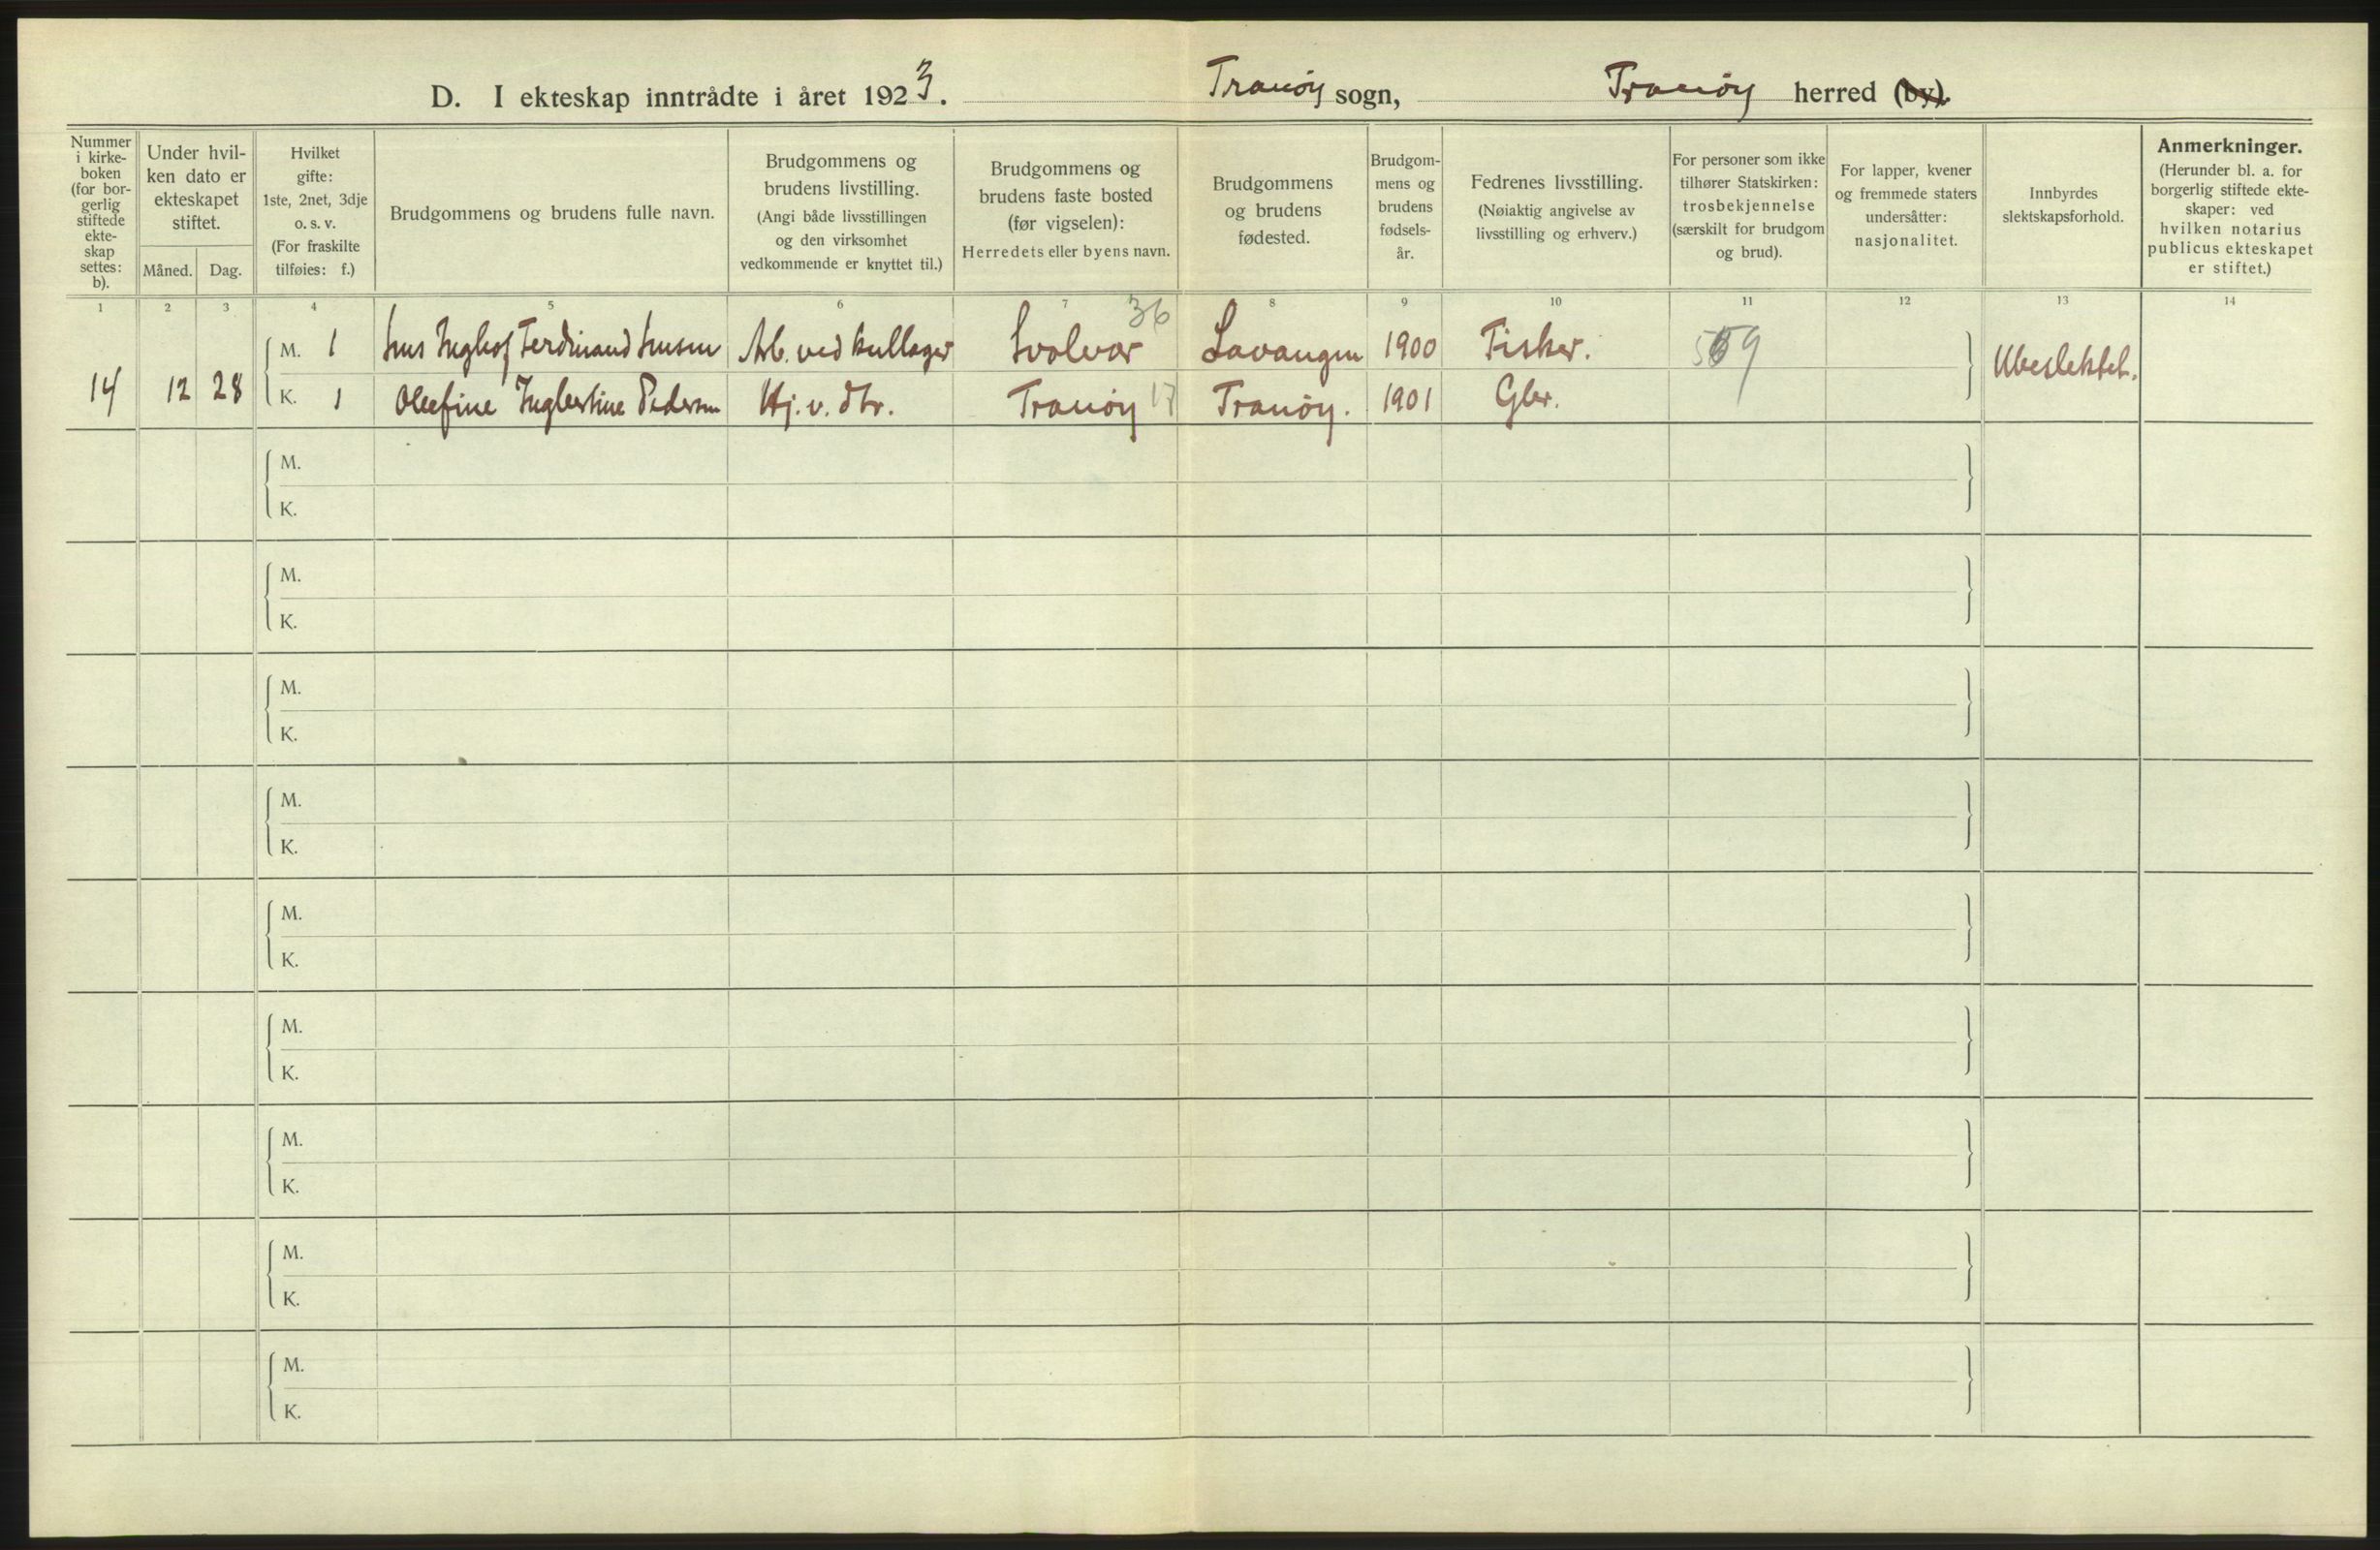 D. I ekteskap inntrådte i året 1923. Tranöy sogn, Tranöy herred (by).
Nummer i kirkeboken (for borgerlig stiftede ekteskap settes: b).
Under hvilken dato er ekteskapet stiftet.
Måned. Dag.
Hvilket gifte: 1ste, 2net, 3dje o. s. v. (For fraskilte tilføies: f.)
Brudgommens og brudens fulle navn.
Brudgommens og brudens livstilling. (Angi både livsstillingen og den virksomhet vedkommende er knyttet til.)
Brudgommens og brudens faste bosted (før vigselen): Herredets eller byens navn.
Brudgommens og brudens fødested.
Brudgommens og brudens fødsels-år.
Fedrenes livsstilling. (Nøiaktig angivelse av livsstilling og erhverv.)
For personer som ikke tilhører Statskirken: trosbekjennelse (særskilt for brudgom og brud).
For lapper, kvener og fremmede staters undersåtter: nasjonalitet.
Innbyrdes slektskapsforhold.
Anmerkninger. (Herunder bl. a. for borgerlig stiftede ekteskaper: ved hvilken notarius publicus ekteskapet er stiftet.)
1 2 3 4 5 6 7 8 9 10 11 12 13 14
36
M. 1 Ferdinand Arb. ved kullager Svolvær Lavangen 1900 Fisker. Ubeslektet.
14 12 28 K. 1 Olefine Ingbertine Pedersen Hj. v. dtr. Tranöy 17 Tranöy. 1901 Gbr.
M.
K.
M.
K.
M.
K.
M.
K.
M.
K.
M.
K.
M.
K.
M.
K.
M.
K.